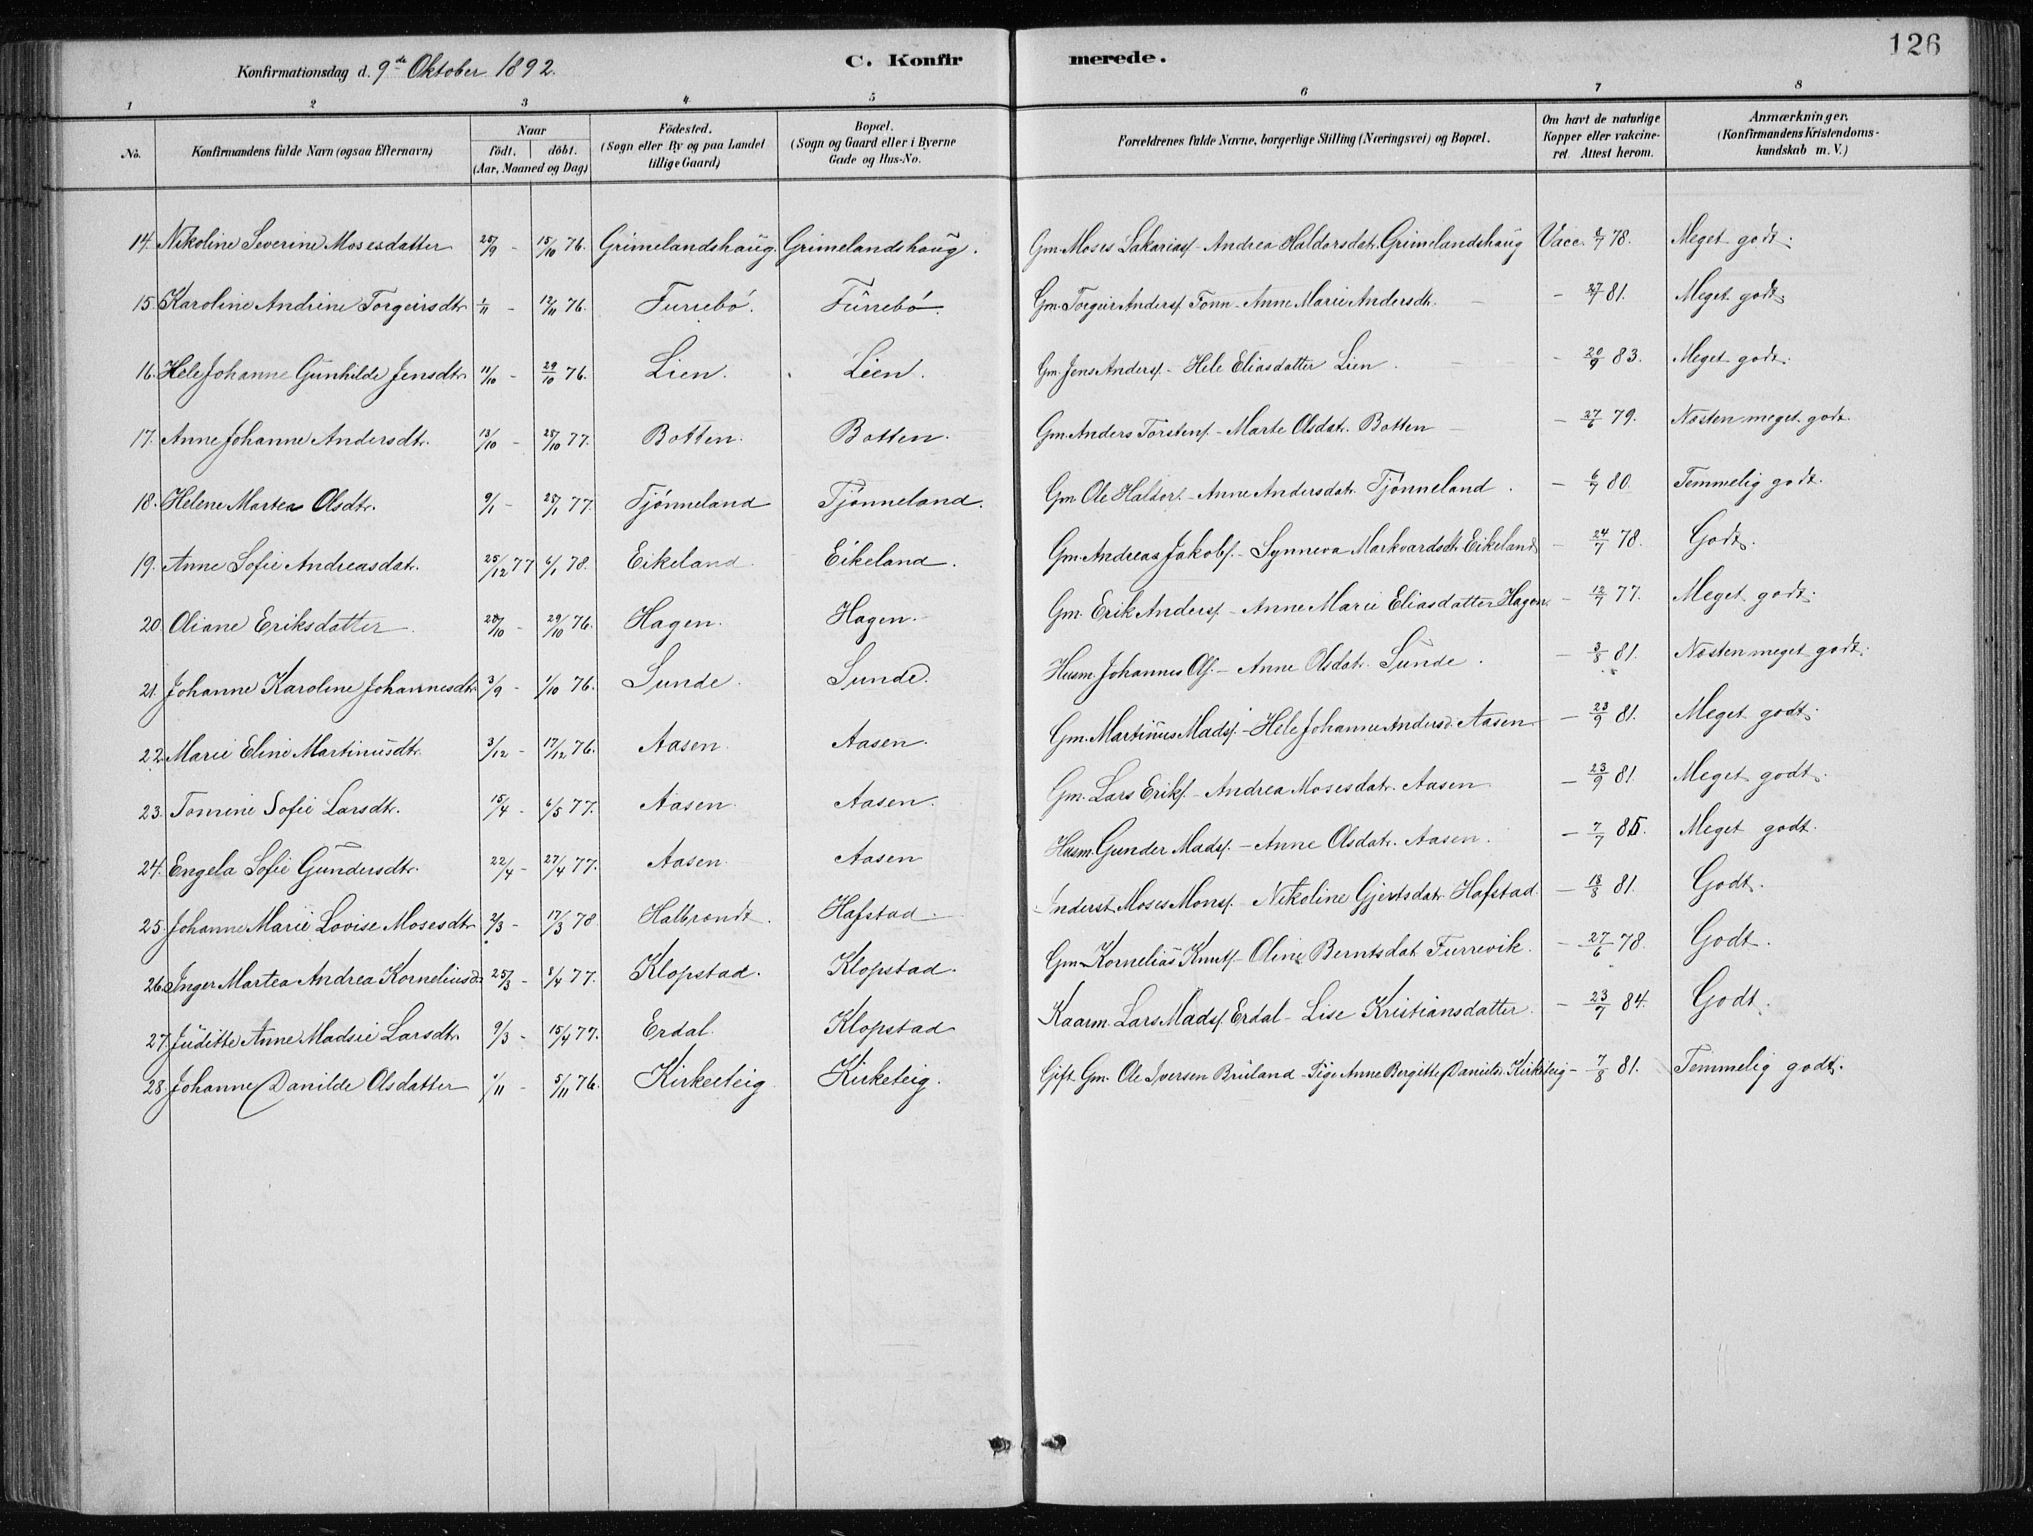 126
Konfirmationsdag d. 9de Oktober 1892.
C. Konfirmerede.
1 2 3 4 5 6 7 8
No. Konfirmandens fulde Navn (ogsaa Efternavn) Naar födt. döbt. (Aar, Maaned og Dag) Födested. (Sogn eller By og paa Landet tillige Gaard) Bopæl. (Sogn og Gaard eller i Byerne Gade og Hus-No. Forældrenes fulde Navne, borgerlige Stilling (Næringsvei) og Bopæl. Om havt de naturlige Kopper eller vakcineret. Attest herom. Anmærkninger. (Konfirmandens Kristendomskundskab m. V.)
14. Nikoline Severine Mosesdatter 25/9 - 15/10 76. Grimelandshaug. Grimelandshaug. Gm. Moses Sakariass. - Andrea Haldorsdat. Grimelandshaug Vacc. 8/7 78. Meget godt.
15. Karoline Andrine Torgeirsdtr. 1/11 - 12/11 76. Furrebö. Furrebö. Gm. Torgeir Anderss. Tonn - Anne Marie Andersdtr. - 27/7 81. Meget godt.
16. Hele Johanne Gunhilde Jensdtr. 11/10 - 29/10 76. Lien. Lien. Gm. Jens Anderss. - Hele Eliasdatter Lien. - 20/9 83. Meget godt.
17. Anne Johanne Andersdtr. 13/10 - 28/10 77. Botten. Botten. Gm. Anders Torstens. - Marte Olsdat. Botten - 27/6 79. Nästen meget godt.
18. Helene Martea Olsdtr. 9/1 - 28/1 77. Tjönneland Tjönneland. Gm. Ole Haldors. - Anne Andersdat. Tjönneland. - 6/7 80. Temmelig godt.
19. Anne Sofie Andreasdat. 25/12 77 6/1 78. Eikeland. Eikeland. Gm. Andreas Jakobs. - Synneva Markvardsdt. Eikeland - 24/7 78. Godt.
20 Oliane Eriksdatter 20/10 - 29/10 76. Hagen. Hagen. Gm. Erik Anderss. - Anne Marie Eliasdatter Hagen. - 12/7 77. Meget godt.
21. Johanne Karoline Johannesdtr. 3/9 - 1/10 76. Sunde. Sunde. Husm. Johannes Ols. - Anne Olsdat. Sunde. - 3/8 81. Nästen meget godt.
22. Marie Eline Martinusdtr. 3/12 - 17/12 76. Aasen. Aasen. Gm. Martinus Mads. - Hele Johanne Andersd. Aasen - 23/9 81. Meget godt.
23. Tomine Sofie Larsdtr. 15/4 - 6/5 77. Aasen. Aasen. Gm. Lars Eriks. - Andrea Mosesdat. Aasen - 23/9 81. Meget godt.
24. Engela Sofie Gundersdtr. 22/4 - 27/4 77. Aasen. Aasen Husm. Gunder Mads. - Anne Olsdat. Aasen. - 7/7 85. Meget godt.
25. Johanne Marie Lovise Mosesdtr. 2/3 - 17/3 78 Halbrendt. Hafstad. Inderst Moses Mons. - Nikoline Gjertsdat. Hafstad. - 13/8 81. Godt.
26. Inger Martea Andrea Korneliusd. 25/3 - 8/4 77. Klopstad. Klopstad. Gm. Kornelius Knuts. - Oline Berntsdat. Furrevik. - 27/6 78. Godt.
27. Juditte Anne Madsie Larsdtr. 9/3 - 15/4 77. Erdal. Klopstad Kaarm. Lars Mads. Erdal - Lise Kristiansdatter. - 23/7 84. Godt.
28. Johanne Danilde Olsdatter 1/11 - 5/11 76. Kirketeig Kirketeig. Gift Gm. Ole Iversen Bruland - Pige Anne Bergitte Danielsd. Kirketeig - 7/8 81. Temmelig godt.